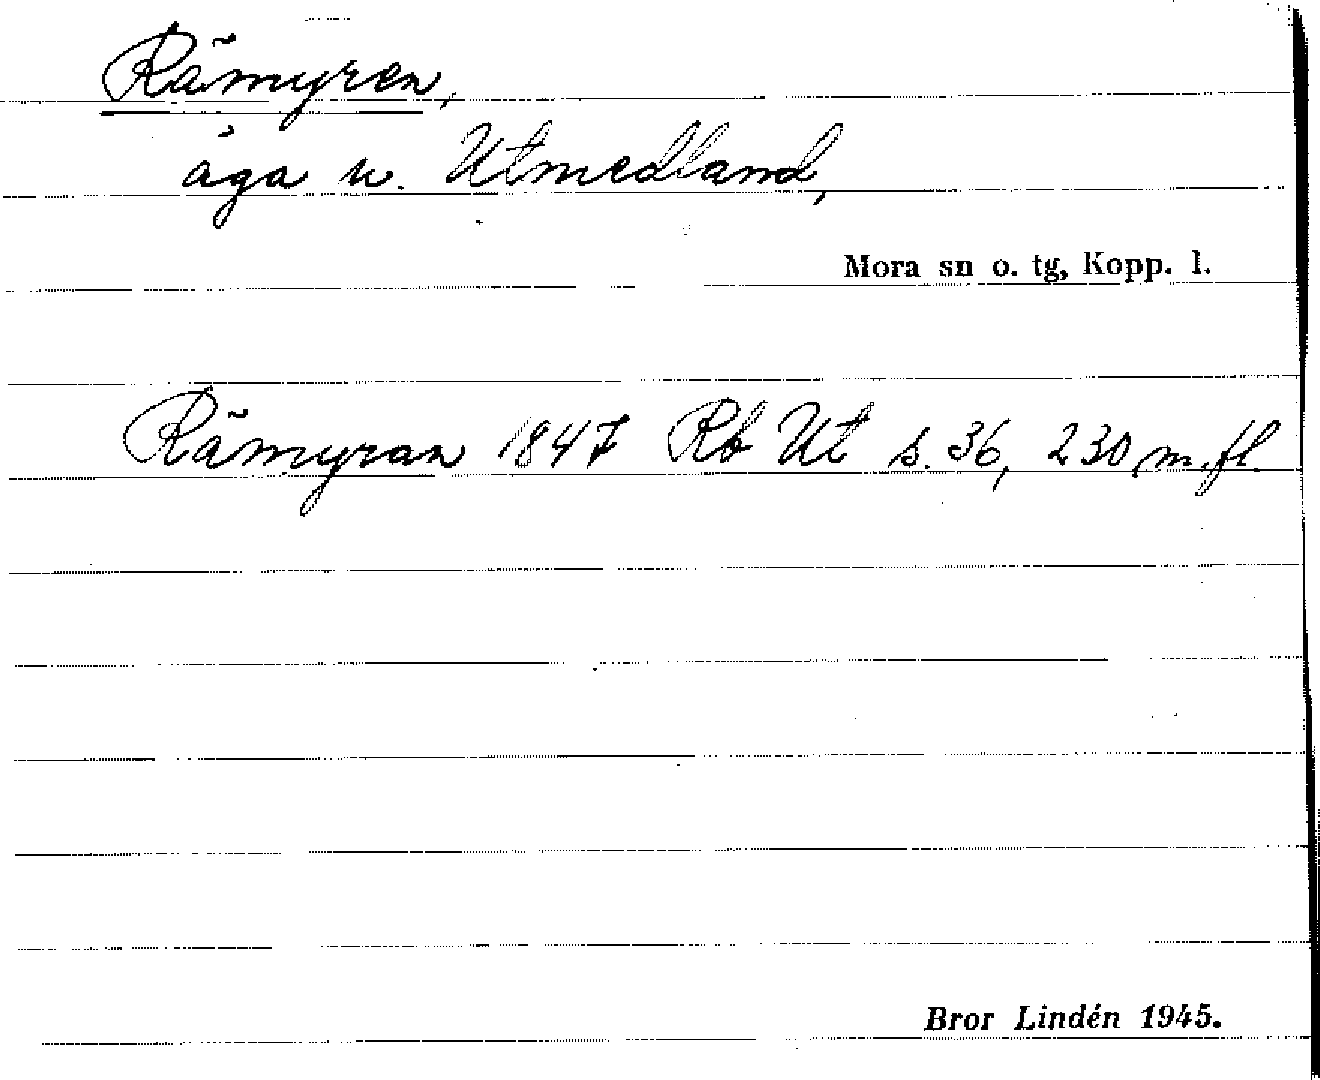 Rämyren,
äga n. Utmedland,
Mora sn o. tg, Kopp. l.
Rämyran 1847 Rb Ut s. 36, 230 m. fl.
Bror Lindén 1945.